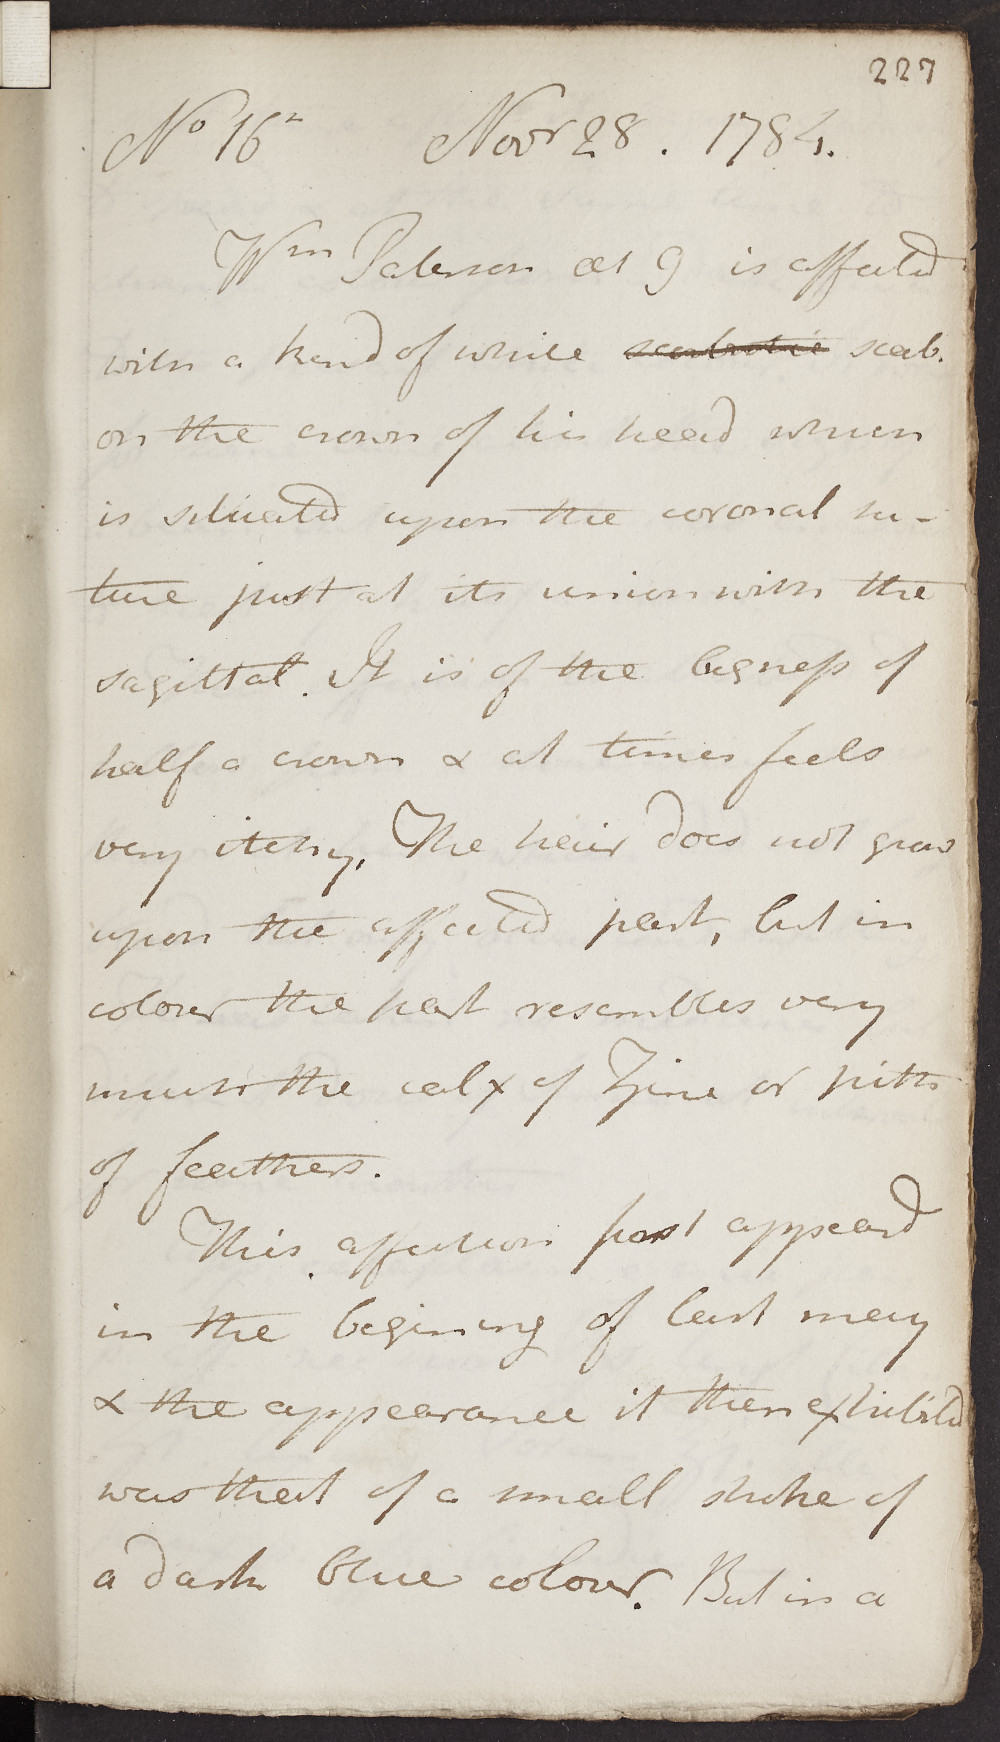 227
No 162 Novr 28. 1784.
Wm Paterson æt 9 is affected
with a kind of white scorbutic scab.
on the crown of his head which
is situated upon the coronal su-
ture just at its union with the
sagittal. It is of the bigness of
half a crown & at times feels
very itchy, The hair does not grow
upon the affected part, but in
colour the part resembles very
much the calx of Zinc or pith
of feathers.
This affection first appeard
in the begining of last may
& the appearance it then exhibited
was that of a small stroke of
a dark blue colour. But in a